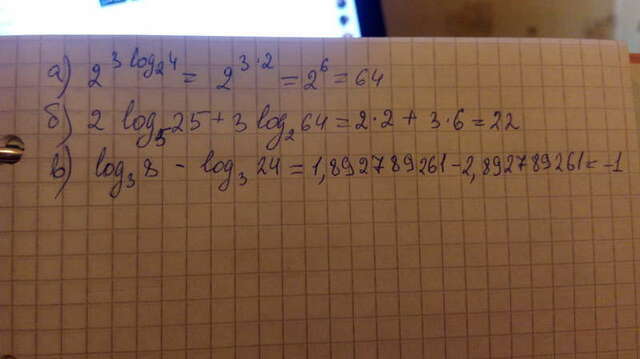 а) 2^(3 log₂4) = 2^(3·2) = 2⁶ = 64
б) 2 log₅25 + 3 log₂64 = 2·2 + 3·6 = 22
в) log₃8 - log₃24 = 1,892789261 - 2,892789261 = -1